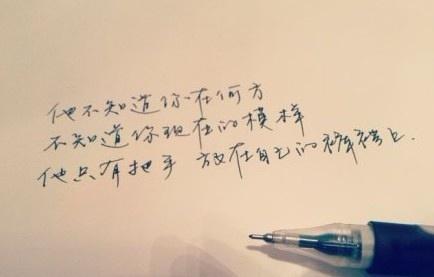 他不知道你在何方
不知道你现在的模样
他只有把手放在自己的裤裆上.